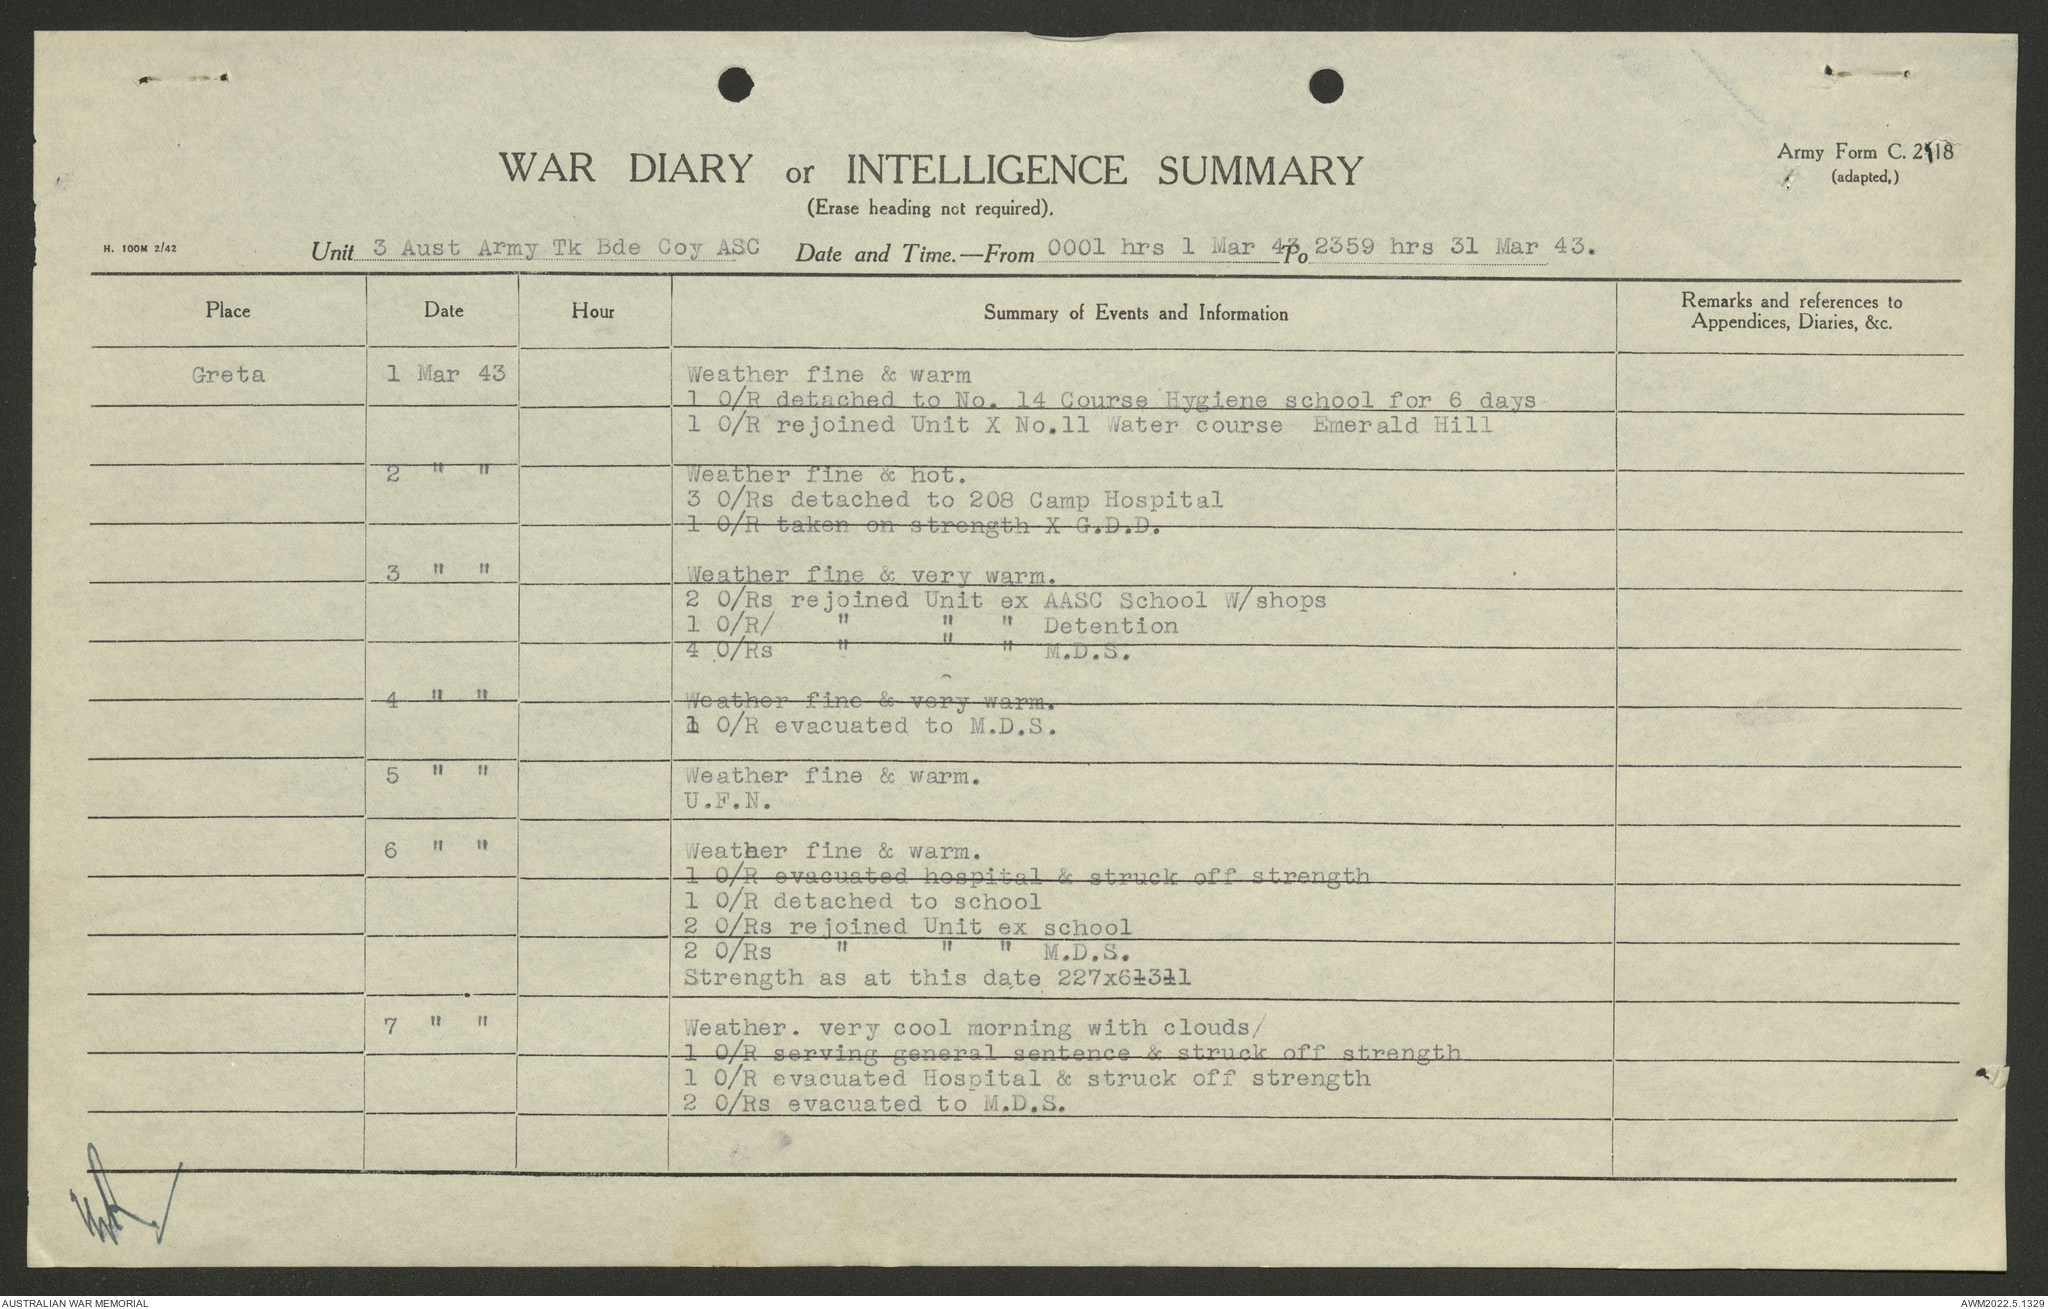 WAR DIARY or INTELLIGENCE SUMMARY
(Erase heading not required).
Army Form C. 2118
(adapted,)
H. 100M 2/42
Unit 3 Aust Army Tk Bde Coy ASC Date and Time.—From 0001 hrs 1 Mar 43 To 2359 hrs 31 Mar 43.
Place Date Hour Summary of Events and Information Remarks and references to Appendices, Diaries, &c.
Greta 1 Mar 43 Weather fine & warm
1 O/R detached to No. 14 Course Hygiene school for 6 days
1 O/R rejoined Unit X No.11 Water course Emerald Hill
2 " " Weather fine & hot.
3 O/Rs detached to 208 Camp Hospital
1 O/R taken on strength X G.D.D.
3 " " Weather fine & very warm.
2 O/Rs rejoined Unit ex AASC School W/shops
1 O/R/ " " " Detention
4 O/Rs " " " M.D.S.
4 " " Weather fine & very warm.
1 O/R evacuated to M.D.S.
5 " " Weather fine & warm.
U.F.N.
6 " " Weather fine & warm.
1 O/R evacuated hospital & struck off strength
1 O/R detached to school
2 O/Rs rejoined Unit ex school
2 O/Rs " " " M.D.S.
Strength as at this date
7 " " Weather. very cool morning with clouds/
1 O/R serving general sentence & struck off strength
1 O/R evacuated Hospital & struck off strength
2 O/Rs evacuated to M.D.S.
AUSTRALIAN WAR MEMORIAL
AWM2022.5.1329